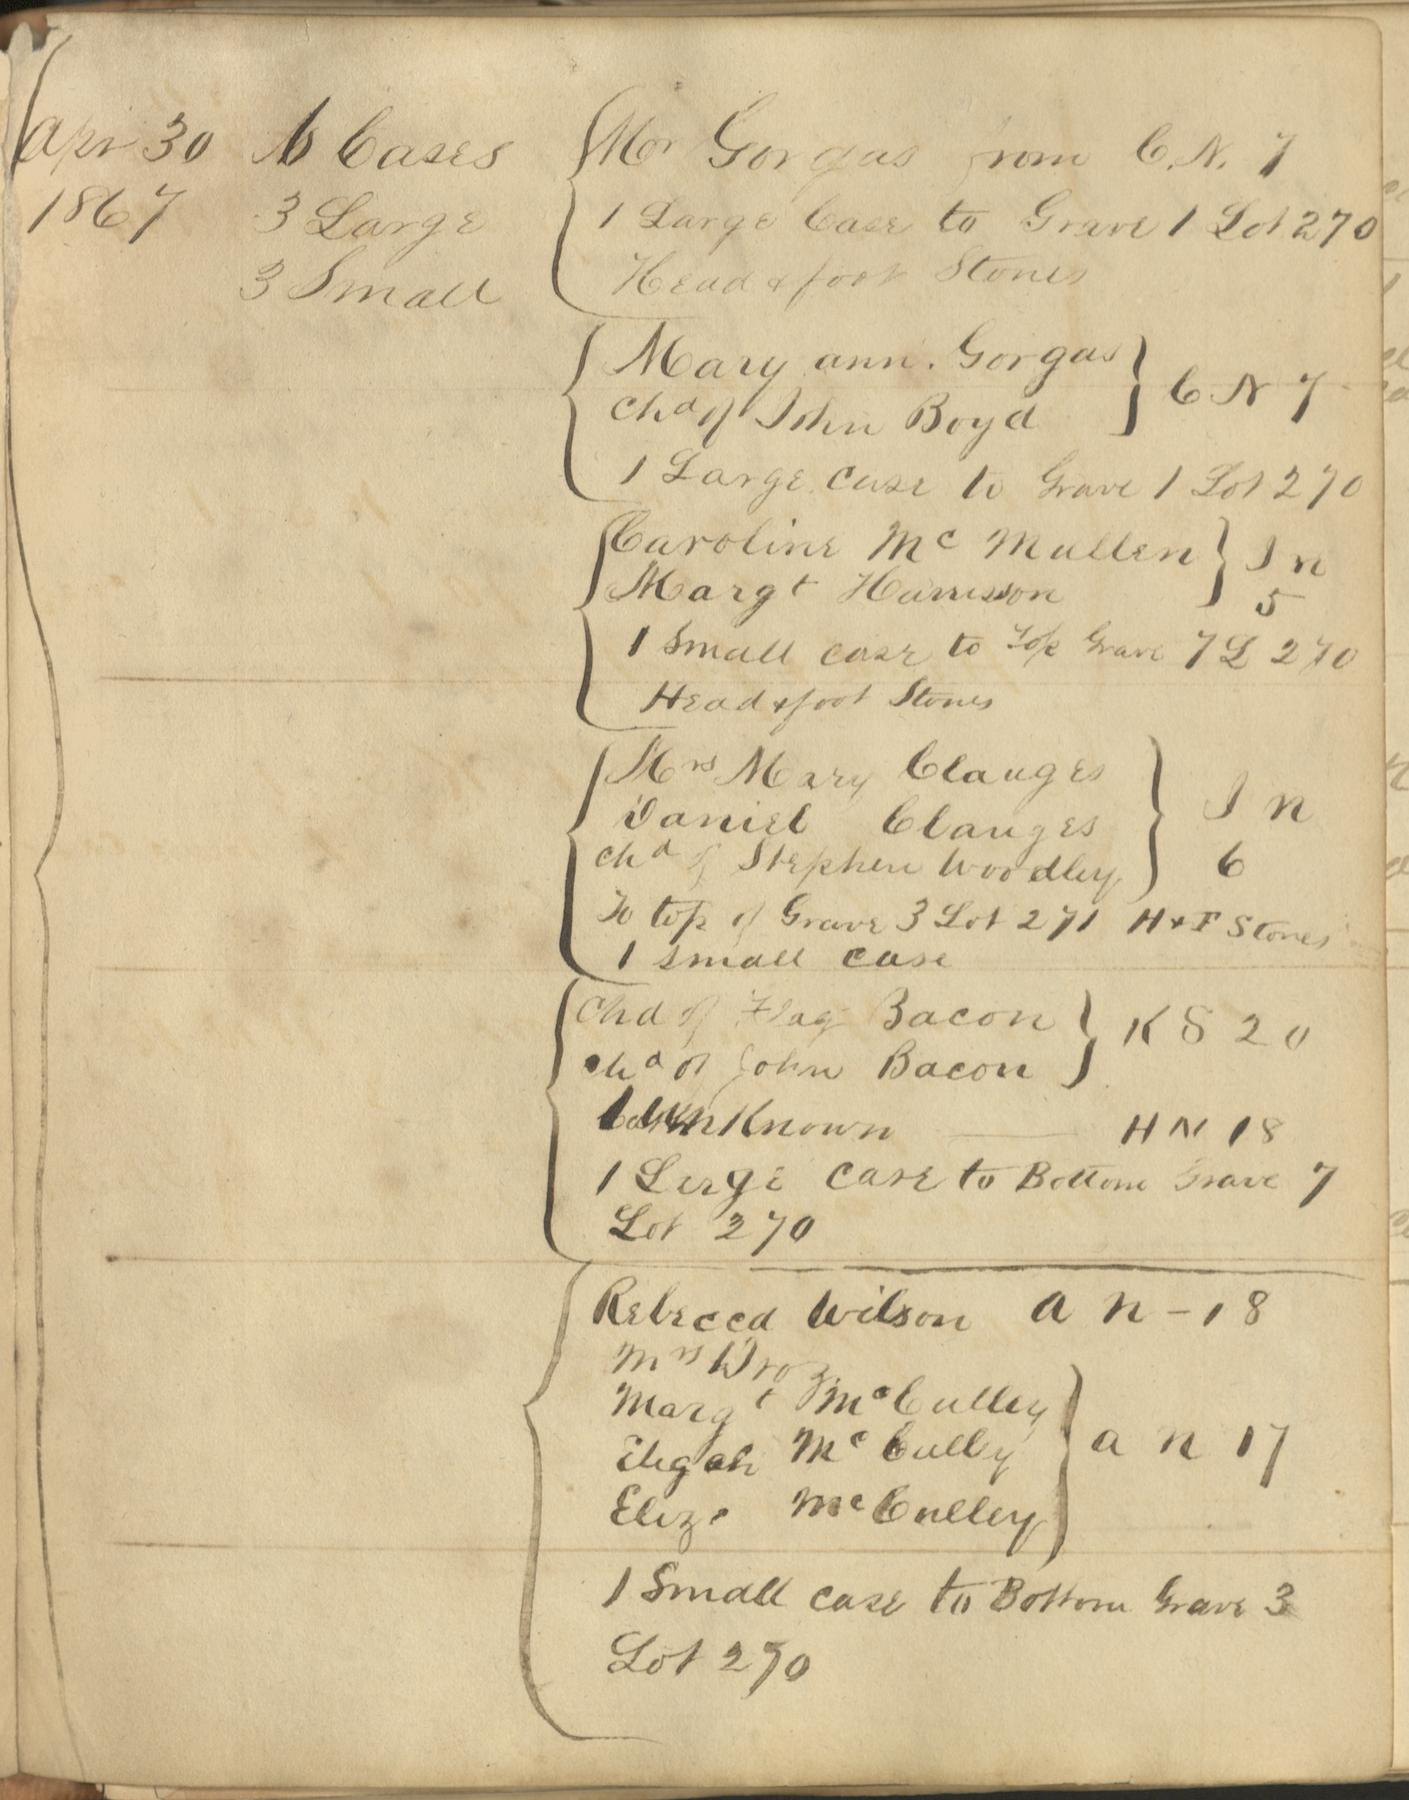 Apr 30 6 Cases
1867 3 Large
3 Small
Mr Gorgas from C. N. 7
1 Large Case to Grave 1 Lot 270
Head & foot Stones
Mary ann. Gorgas
Chd of John Boyd
C N 7
1 Large case to Grave 1 Lot 270
Caroline Mc Mullen
Margt Harrison
I n
5
1 Small case to Top Grave 7 L 270
Head & foot Stones
Mrs Mary Clauges
Daniel Clauges
chd of Stephen Woodley
I n
6
To top of Grave 3 Lot 271 H & F Stones
1 small case
Chd of Flag Bacon
chd of John Bacon
K S 20
UnKnown — H N 18
1 Large case to Bottom Grave 7
Lot 270
Rebecca Wilson a n - 18
Mrs Droz
Margt McCulley
Eligah McCulley
Eliza McCulley
a n 17
1 Small case to Bottom Grave 3
Lot 270